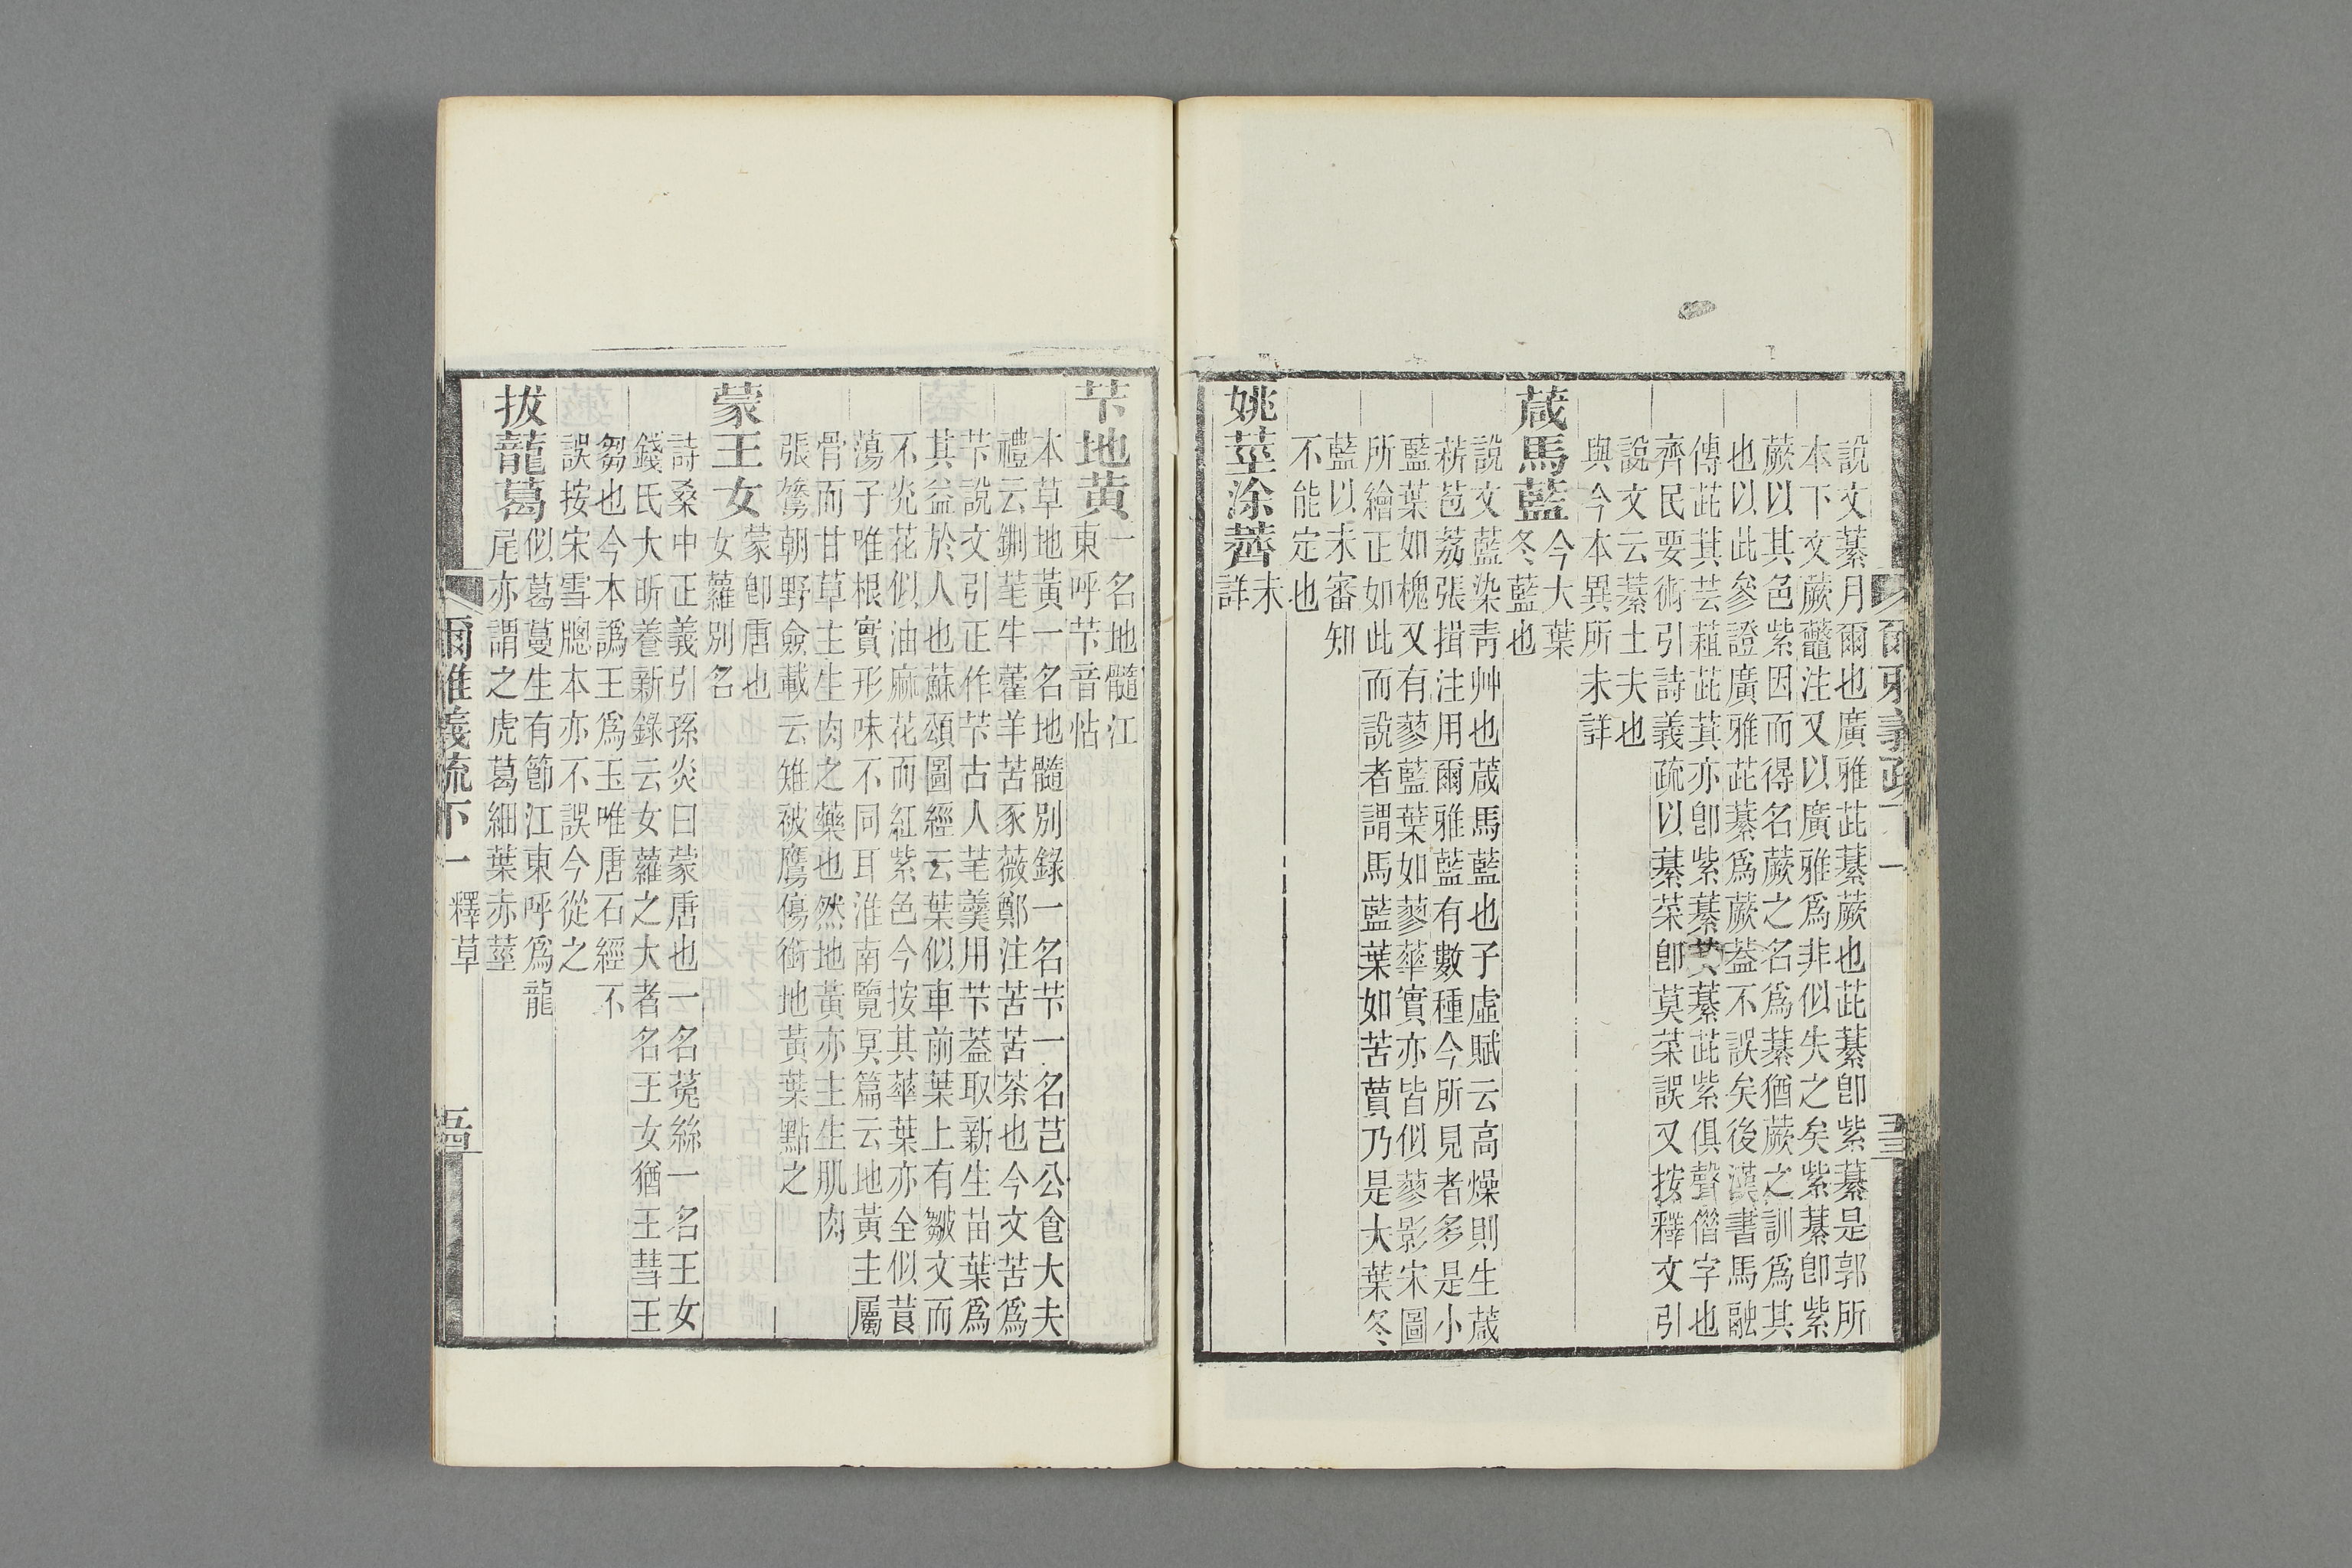 爾雅義疏下一
說文綦月爾也廣雅茈綦蕨也茈綦卽紫綦是郭所
本下文蕨虌注又以廣雅爲非似失之矣紫綦卽紫
蕨以其色紫因而得名蕨之名爲綦猶蕨之訓爲其
也以此參證廣雅茈綦爲蕨葢不誤矣後漢書馬融
傳茈萁芸蒩茈萁亦卽紫綦綦茈紫俱聲僭字也
齊民要術引詩義疏以綦菜卽莫菜誤又按釋文引
說文云綦土夫也
與今本異所未詳
葴馬藍今大葉
冬藍也
說文藍染青艸也葴馬藍也子虛賦云高燥則生葴
菥苞荔張揖注用爾雅藍有數種今所見者多是小
藍葉如槐又有蓼藍葉如蓼華實亦皆似蓼影宋圖
所繪正如此而說者謂馬藍葉如苦蕒乃是大葉冬
藍以未審知
不能定也
姚莖涂薺未
詳
芐地黃一名地髓江
東呼芐音怙
本草地黃一名地髓別錄一名芐一名芑公食大夫
禮云鉶芼牛藿羊苦豕薇鄭注苦苦荼也今文苦爲
芐說文引正作芐古人芼羹用芐葢取新生苗葉爲
其益於人也蘇頌圖經云葉似車前葉上有皺文而
不光花似油麻花而紅紫色今按其華葉亦全似茛
蕩子唯根實形味不同耳淮南覽冥篇云地黃主屬
骨而甘草主生肉之藥也然地黃亦主生肌肉
張鷟朝野僉載云雉被鷹傷銜地黃葉點之
蒙王女蒙卽唐也
女蘿別名
詩桑中正義引孫炎曰蒙唐也一名菟絲一名王女
錢氏大昕養新錄云女蘿之大者名王女猶王彗王
芻也今本譌王爲玉唯唐石經不
誤按宋雪牕本亦不誤今從之
拔蘢葛似葛蔓生有節江東呼爲龍
尾亦謂之虎葛細葉赤莖
爾雅義疏下一 釋草